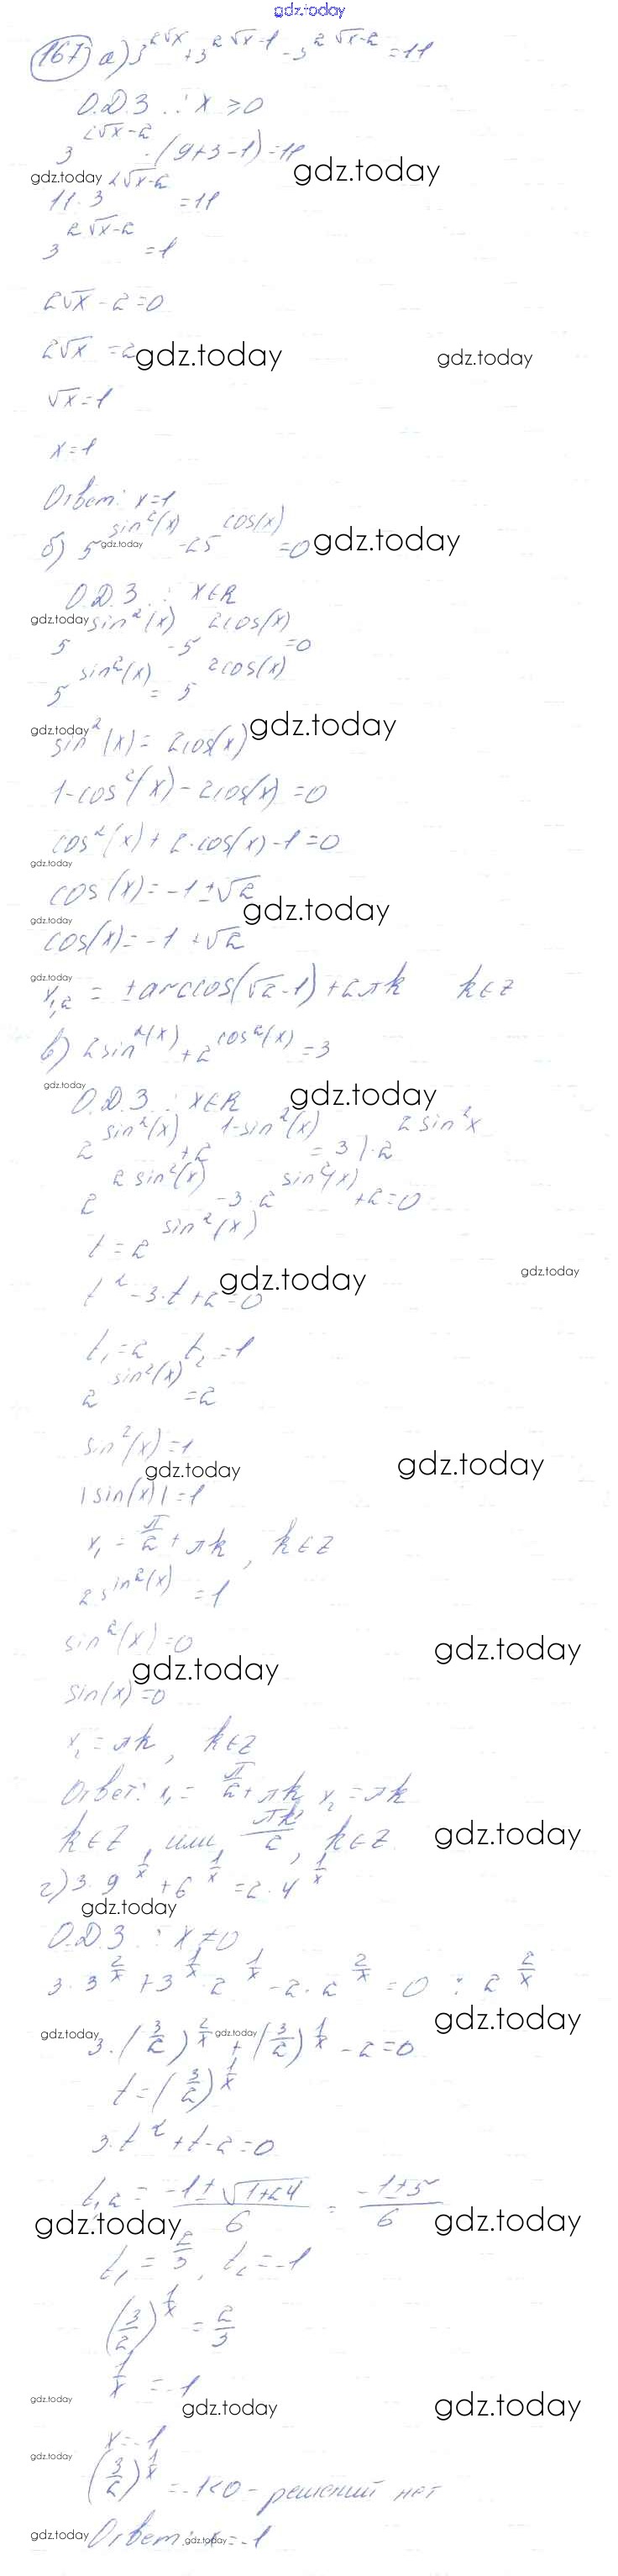 gdz.today
167) а) 3^(2√x) + 3^(2√x-1) - 3^(2√x-2) = 11
О.Д.З.: x ≥ 0
3^(2√x-2) · (9+3-1) = 11
gdz.today
gdz.today
11 · 3^(2√x-2) = 11
3^(2√x-2) = 1
2√x - 2 = 0
2√x = 2
gdz.today
gdz.today
√x = 1
x = 1
Ответ: x = 1
б) 5^(sin²(x)) - 25^(cos(x)) = 0
gdz.today
gdz.today
О.Д.З.: x∈R
gdz.today
5^(sin²(x)) - 5^(2cos(x)) = 0
5^(sin²(x)) = 5^(2cos(x))
gdz.today
gdz.today
sin²(x) = 2cos(x)
1 - cos²(x) - 2cos(x) = 0
cos²(x) + 2·cos(x) - 1 = 0
gdz.today
cos(x) = -1 ± √2
gdz.today
gdz.today
cos(x) = -1 + √2
gdz.today
x₁,₂ = ± arccos(√2-1) + 2πk k∈Z
в) 2^(sin²(x)) + 2^(cos²(x)) = 3
gdz.today
gdz.today
О.Д.З.: x∈R
2^(sin²(x)) + 2^(1-sin²(x)) = 3 | · 2^(sin²x)
2^(2sin²(x)) - 3·2^(sin²(x)) + 2 = 0
t = 2^(sin²(x))
gdz.today
gdz.today
t² - 3·t + 2 = 0
t₁ = 2 t₂ = 1
2^(sin²(x)) = 2
sin²(x) = 1
gdz.today
gdz.today
|sin(x)| = 1
x₁ = π/2 + πk, k∈Z
2^(sin²(x)) = 1
sin²(x) = 0
gdz.today
gdz.today
sin(x) = 0
x₂ = πk, k∈Z
Ответ: x₁ = π/2 + πk, x₂ = πk
k∈Z, или πk/2, k∈Z
gdz.today
г) 3·9^(1/x) + 6^(1/x) = 2·4^(1/x)
gdz.today
О.Д.З.: x ≠ 0
3·3^(2/x) + 3^(1/x)·2^(1/x) - 2·2^(2/x) = 0 : 2^(2/x)
gdz.today
gdz.today
gdz.today
3·(3/2)^(2/x) + (3/2)^(1/x) - 2 = 0
t = (3/2)^(1/x)
3·t² + t - 2 = 0
t₁,₂ = (-1±√(1+24))/6 = (-1±5)/6
gdz.today
gdz.today
t₁ = 2/3, t₂ = -1
(3/2)^(1/x) = 2/3
1/x = -1
gdz.today
gdz.today
gdz.today
x = -1
gdz.today
(3/2)^(1/x) = -1<0 - решений нет
gdz.today
gdz.today
Ответ: x = -1